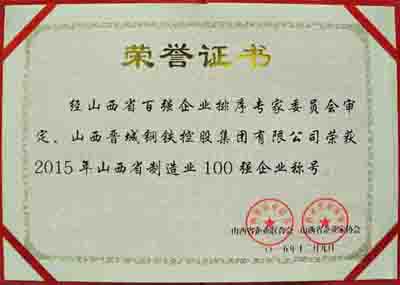 荣誉证书
经山西省百强企业排序专家委员会审
定、山西晋城钢铁控股集团有限公司荣获
2015年山西省制造业100强企业称号。
山西省企业联合会 山西省企业家协会
二〇一五年十二月九日